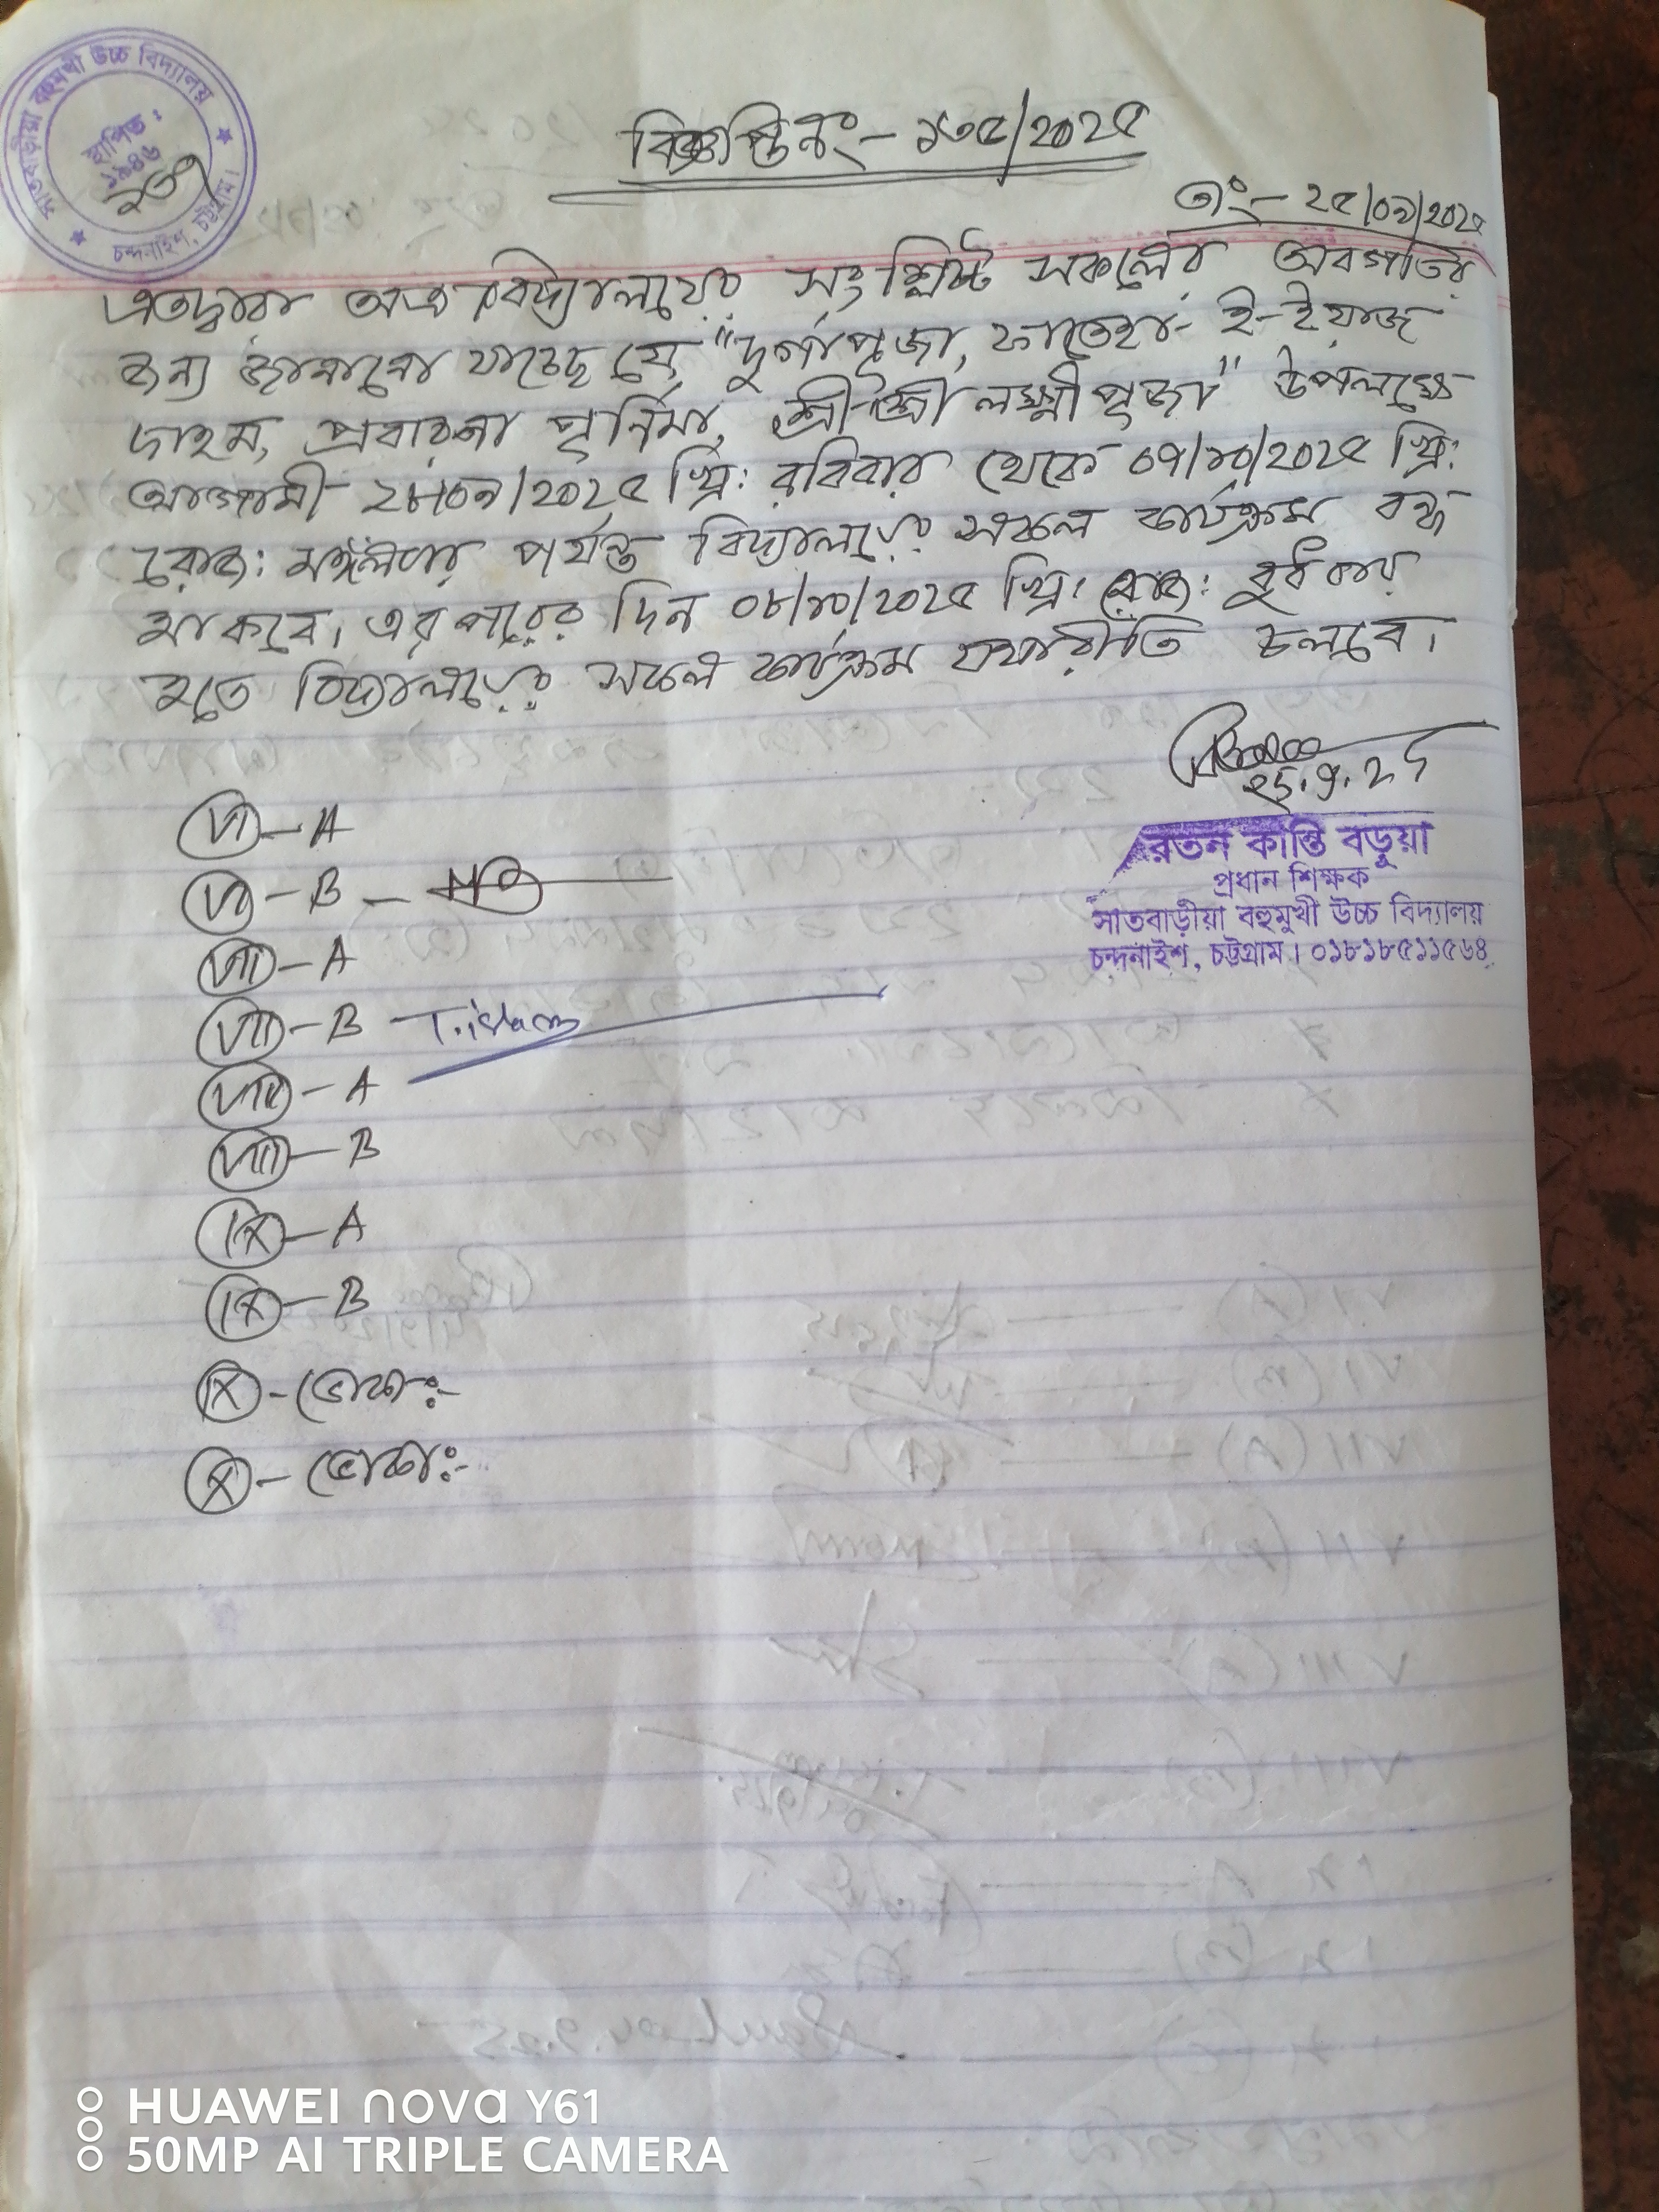 সাতবাড়ীয়া বহুমুখী উচ্চ বিদ্যালয়
স্থাপিত :
১৯৪৬
চন্দনাইশ, চট্টগ্রাম।
বিজ্ঞপ্তি নং- ১৩৫/২০২৫
তাং- ২৫/০৯/২০২৫
এতদ্বারা অত্র বিদ্যালয়ের সংশ্লিষ্ট সকলের অবগতির
জন্য জানানো যাচ্ছে যে "দুর্গাপূজা, ফাতেহা-ই-ইয়াজ
দাহম, প্রবারণা পূর্নিমা, শ্রী-শ্রী লক্ষ্মীপূজা" উপলক্ষে
আগামী ২৮/০৯/২০২৫ খ্রি: রবিবার থেকে ০৭/১০/২০২৫ খ্রি:
রোজ: মঙ্গলবার পর্যন্ত বিদ্যালয়ের সকল কার্যক্রম বন্ধ
থাকবে। এর পরের দিন ০৮/১০/২০২৫ খ্রি: রোজ: বুধবার
হতে বিদ্যালয়ের সকল কার্যক্রম যথারীতি চলবে।
25.9.25
রতন কান্তি বড়ুয়া
প্রধান শিক্ষক
সাতবাড়ীয়া বহুমুখী উচ্চ বিদ্যালয়
চন্দনাইশ, চট্টগ্রাম। ০১৮১৮৫১১৫৬৪
VI - A
VI - B -
VII - A
VII - B - T.islam
VIII - A
VIII - B
IX - A
IX - B
IX - ভোকা:-
X - ভোকা:-
HUAWEI nova Y61
50MP AI TRIPLE CAMERA